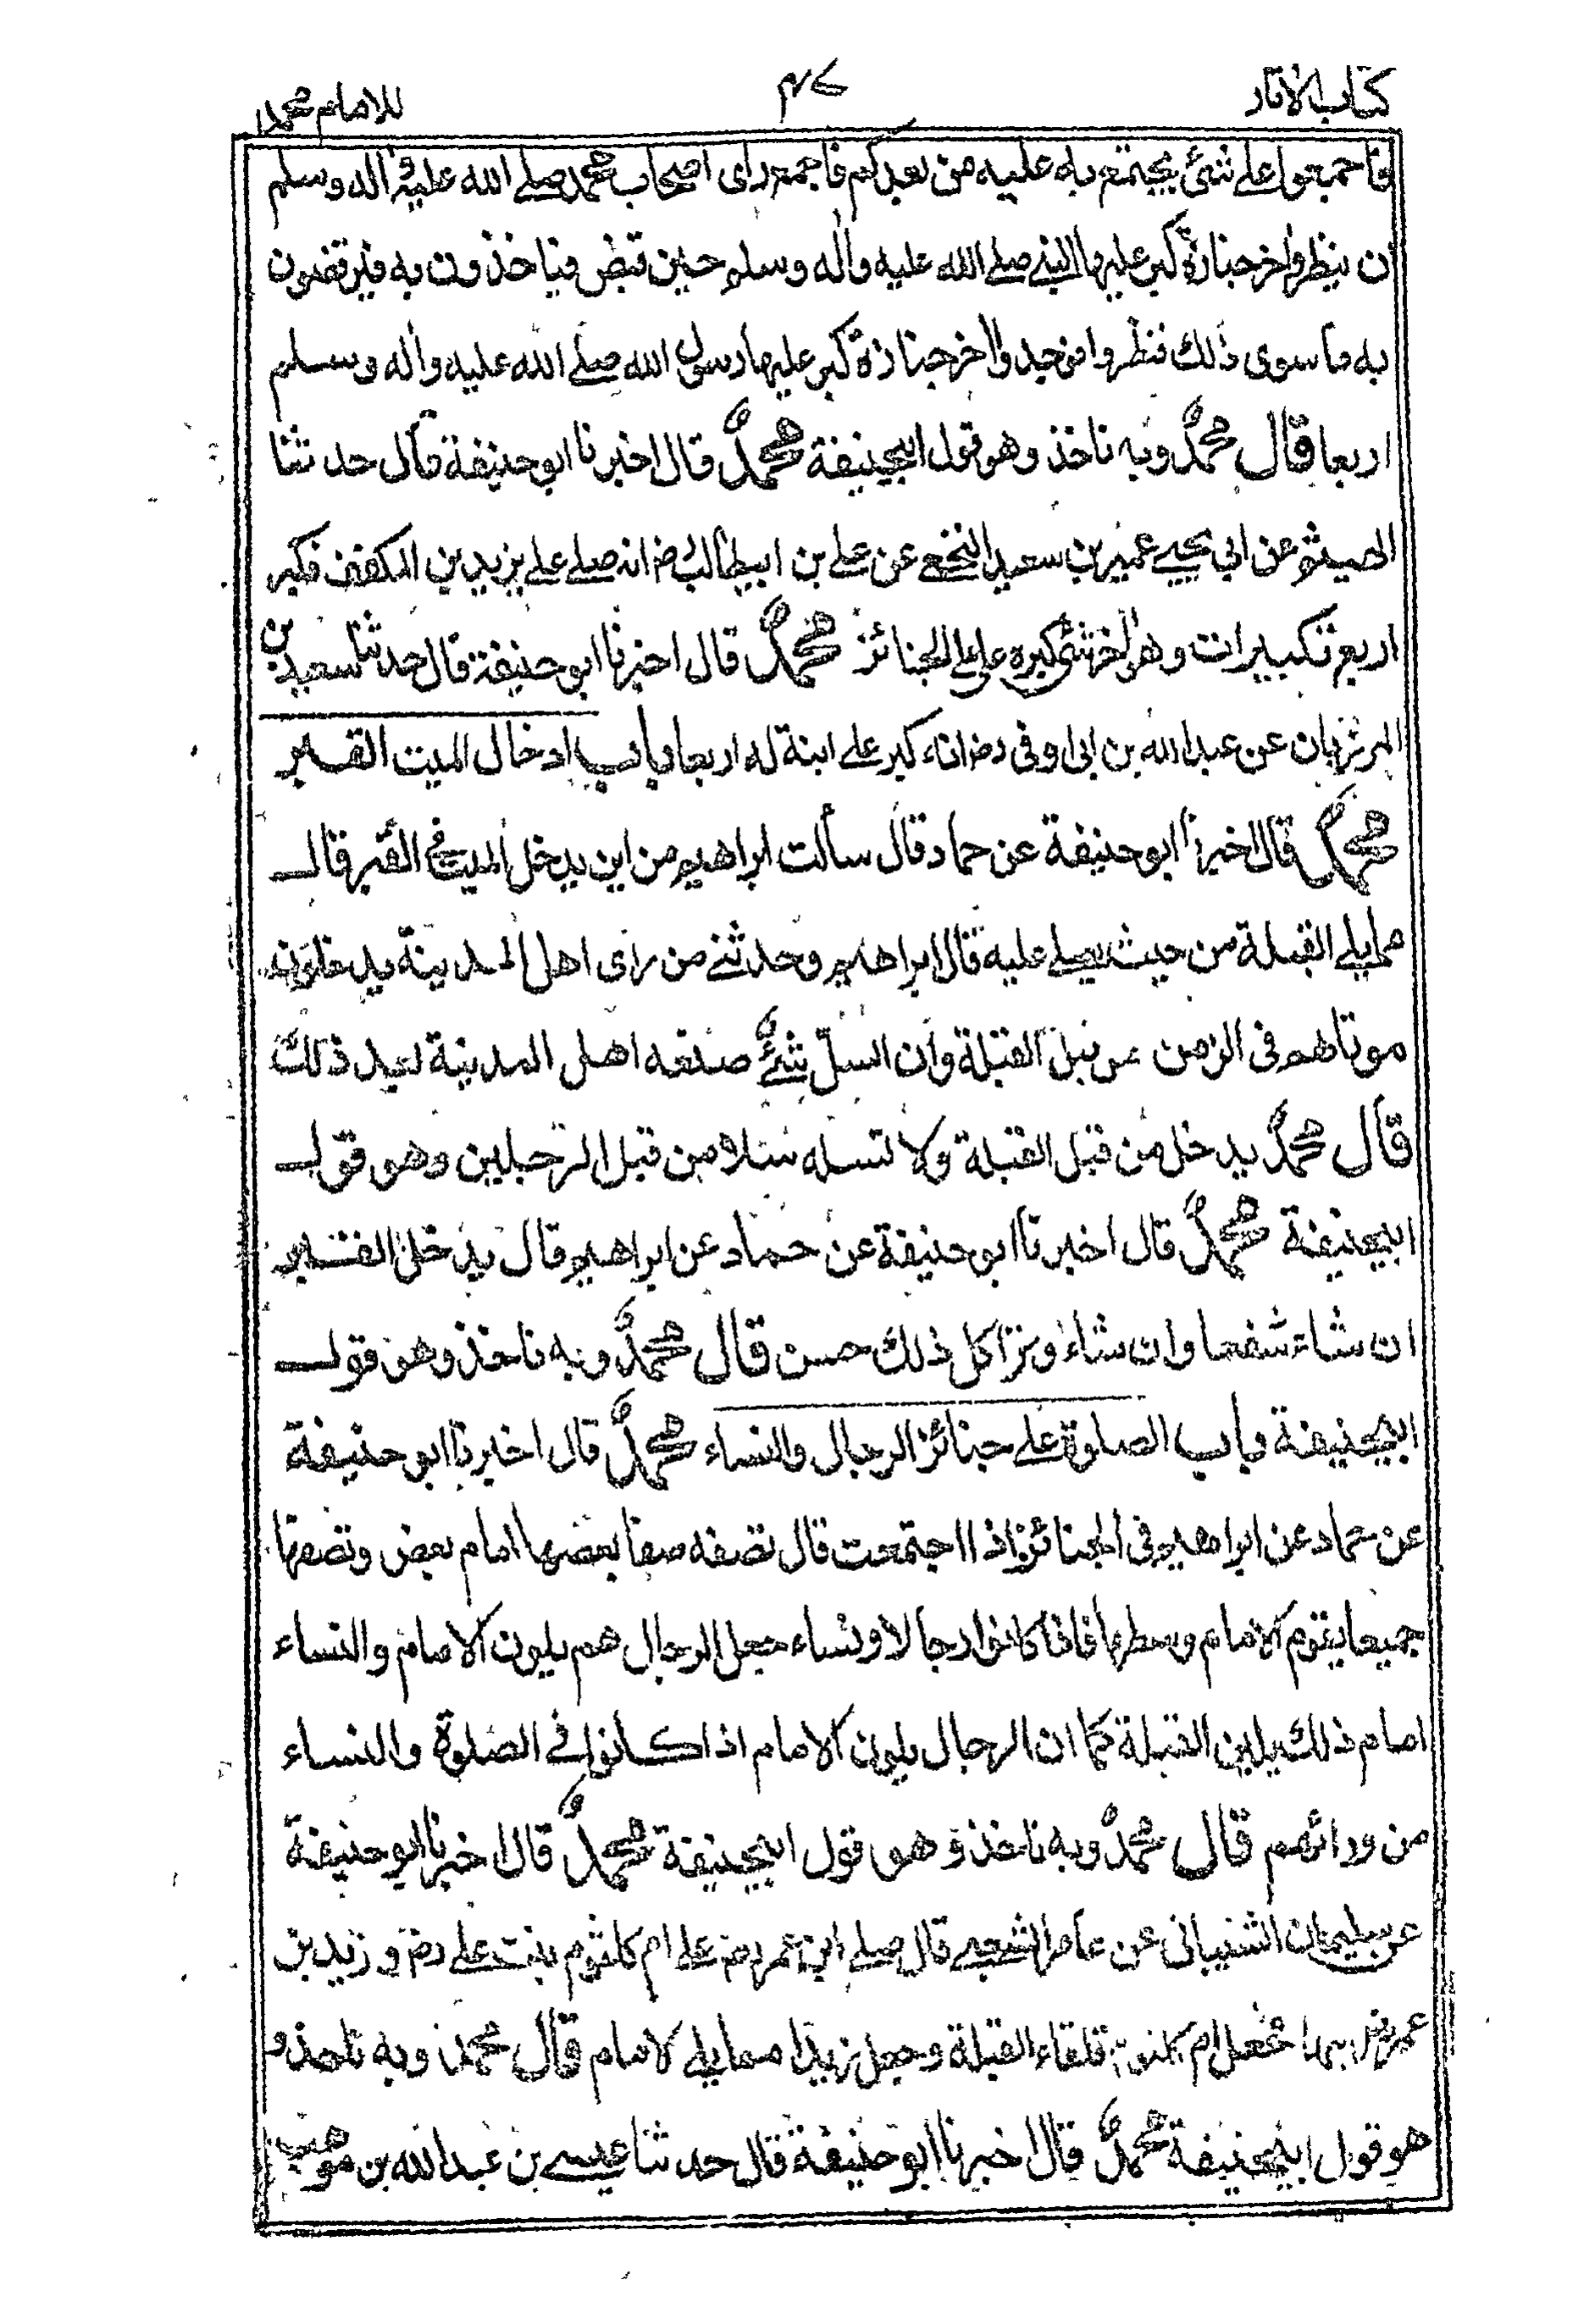 كتاب الاثار ٤٧ للامام محمدؒ
فاجمعوا على شئ يجتمع به عليه من بعدكم فاجمع راى اصحاب محمد صلى الله عليه واله وسلم
ان ينظروا اخر جنازة كبر عليها النبى صلى الله عليه واله وسلم حين قبض فياخذون به فيرفضون
به ما سوى ذلك فنظروا فوجدوا اخر جنازة كبر عليها رسول الله صلى الله عليه واله وسلم
اربعا قال محمدؒ وبه ناخذ وهو قول ابيحنيفة محمدؒ قال اخبرنا ابو حنيفة قال حدثنا
الهيثم عن ابى يحيى عمير بن سعيد النخعى عن على بن ابيطالب رض انه صلى على يزيد بن المكفف فكبر
اربع تكبيرات وهو اخر شئ كبره على الجنائز محمدؒ قال اخبرنا ابو حنيفة قال حدثنا سعيد بن
المرزبان عن عبد الله بن ابى اوفى رض انه كبر على ابنة له اربعا باب ادخال الميت القبر
محمدؒ قال اخبرنا ابو حنيفة عن حماد قال سألت ابراهيم من اين يدخل الميت فى القبر قال
مما يلى القبلة من حيث يصلى عليه قال ابراهيم وحدثنى من راى اهل المدينة يدخلون
موتاهم فى الزمن من قبل القبلة وان السل شئ صنعه اهل المدينة بعد ذلك
قال محمدؒ يدخل من قبل القبلة ولا تسله سلا من قبل الرجلين وهو قول
ابيحنيفة محمدؒ قال اخبرنا ابو حنيفة عن حماد عن ابراهيم قال يدخل القبر
ان شاء شفعا وان شاء وترا كل ذلك حسن قال محمدؒ وبه ناخذ وهو قول
ابيحنيفة باب الصلوة على جنائز الرجال والنساء محمدؒ قال اخبرنا ابو حنيفة
عن حماد عن ابراهيم فى الجنائز اذا اجتمعت قال تصفه صفا بعضها امام بعض وتصفها
جميعا يقوم الامام وسطها فاذا كانوا رجالا ونساء جعل الرجال هم يلون الامام والنساء
امام ذلك يلين القبلة كما ان الرجال يلون الامام اذا كانوا فى الصلوة والنساء
من ورائهم قال محمدؒ وبه ناخذ وهو قول ابيحنيفة محمدؒ قال اخبرنا ابو حنيفة
عن سليمان الشيبانى عن عامر الشعبى قال صلى ابن عمر رض على ام كلثوم بنت على رض وزيد بن
عمر رض ابنها فجعل ام كلثوم تلقاء القبلة وجعل زيدا مما يلى الامام قال محمدؒ وبه ناخذ و
هو قول ابيحنيفة محمدؒ قال اخبرنا ابو حنيفة قال حدثنا عيسى بن عبد الله بن موهب